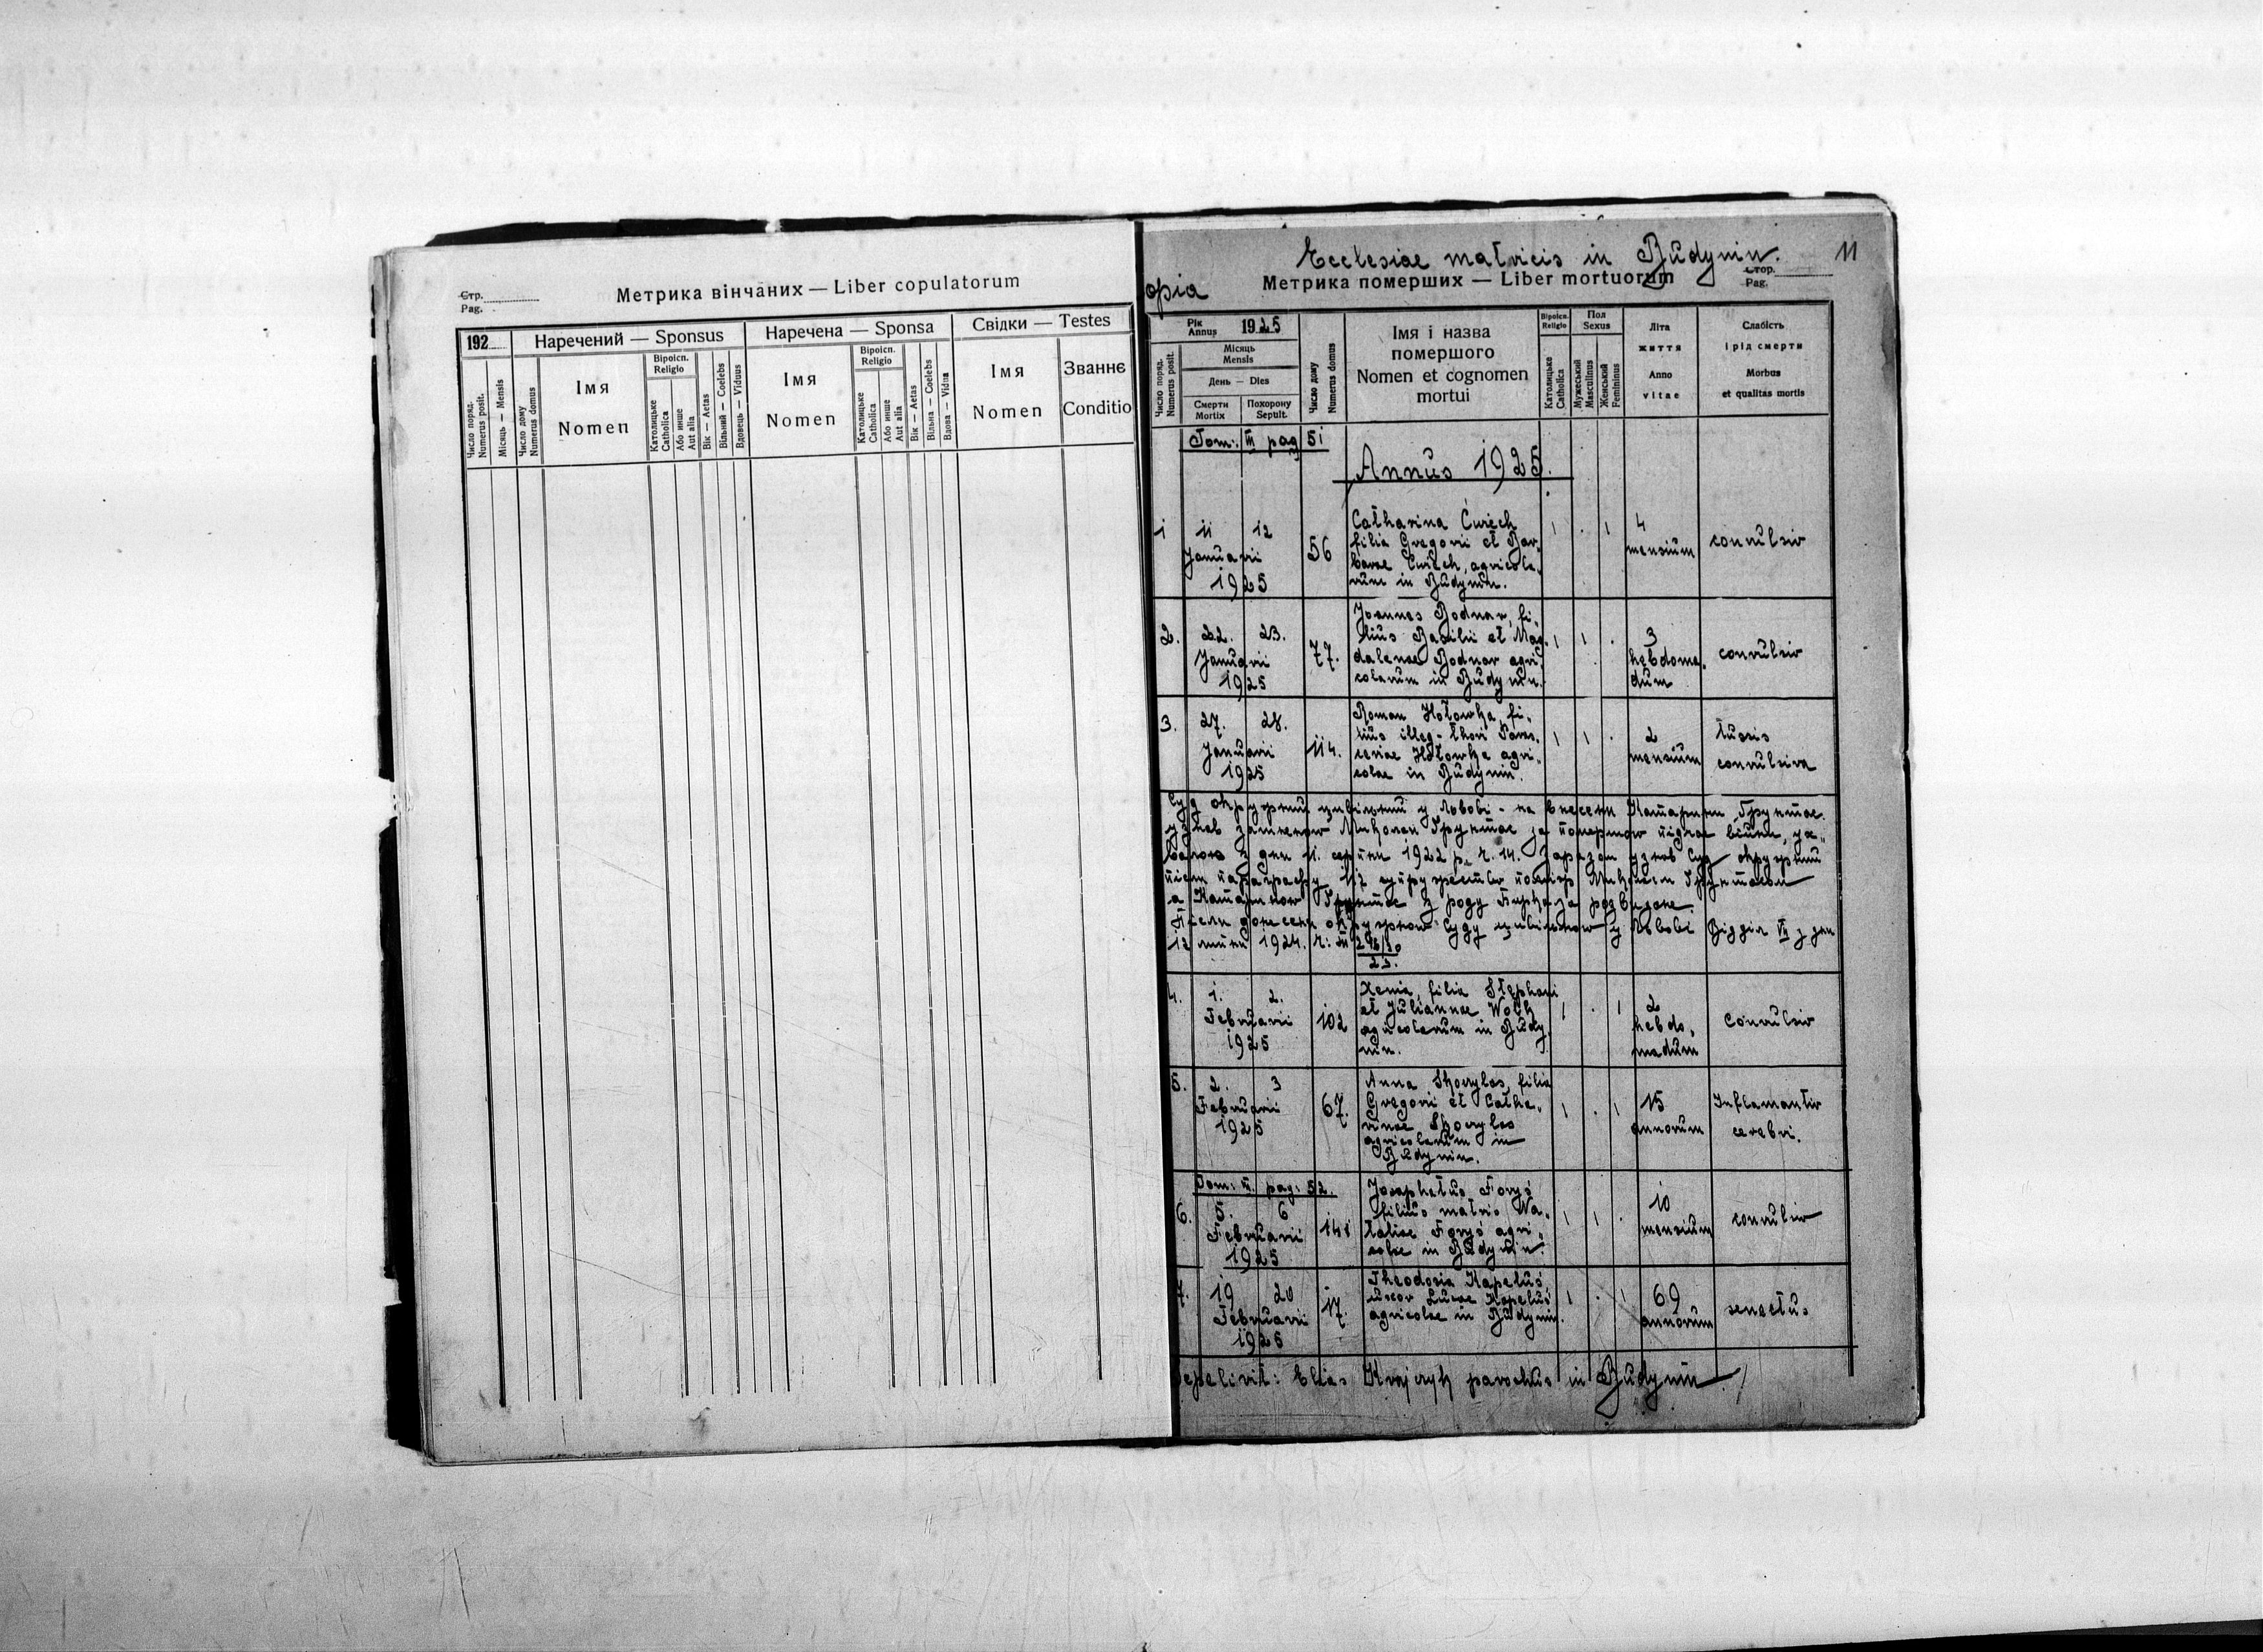 Стр.
Pag.
Метрика вінчаних — Liber copulatorum
192
Наречений — Sponsus
Наречена — Sponsa
Свідки — Testes
Число поряд.
Numerus posit.
Місяць — Mensis
Число дому
Numerus domus
Імя
Nomen
Віроісп.
Religio
Католицьке
Catholica
Або инше
Aut alia
Вік — Aetas
Вільний — Coelebs
Вдовець — Viduus
Імя
Nomen
Віроісп.
Religio
Католицьке
Catholica
Або инше
Aut alia
Вік — Aetas
Вільна — Coelebs
Вдова — Vidua
Імя
Nomen
Званнє
Conditio
Ecclesiae matricis in Budynin.
11
opia
Метрика померших — Liber mortuorum
Стор.
Pag.
Число поряд.
Numerus posit.
Рік
Annus
1925
Місяць
Mensis
День — Dies
Смерти
Mortix
Похорону
Sepult.
Число дому
Numerus domus
Імя і назва
помершого
Nomen et cognomen
mortui
Віроісп.
Religio
Католицьке
Catholica
Пол
Sexus
Мужеський
Masculinus
Женський
Femininus
Літа
життя
Anno
vitae
Слабість
і рід смерти
Morbus
et qualitas mortis
Tom: III pag 51
Annus 1925.
1 11 12
Januarii
1925
56
Catharina Ćwich
filia Gregorii et Bar„
barae Ćwich, agricola„
rum in Budynin.
4
mensium
convulsio
2. 22. 23.
Januarii
1925
77.
Joannes Bodnar, fi„
lius Basilii et Mag„
dalenae Bodnar agri„
colarum in Budynin.
3
hebdoma„
dum
convulsio
3. 27. 28.
Januarii
1925
114.
Roman Hołowka, fi„
lius illeg. thori Paras„
ceviae Hołowka agri„
colae in Budynin.
2
mensium
tussis
convulsiva
Суд окружний цивільний у Львові - на внесенн Катарини Грунтас
узнав Миколая Грунтас за помершого підчас війни, ух„
валою з дня 11. серпня 1922 р. Заразом узнав Суд окружний
супружество поміж Миколаєм Грунтасом
а Катариною Грунтас з роду за розведене.
Після донесеня окружного Суду цивільного у Львові Відділ VII з дня
12 липня 1924.
4. 1. 2.
Februarii
1925
102
Xenia, filia Stephani
et Juliannae Wołk
agricolarum in Budy„
nin.
2
hebdo„
madum
Convulsio
5. 2. 3
Februarii
1925
67.
Anna Skorylas, filia
Gregorii et Catha„
rinae Skorylas
agricolarum in
Budynin.
15
annorum
Inflamantio
cerebri.
Tom: II. pag: 52.
6. 5. 6
Februarii
1925
141
Josaphatus Foryś
filius matris Na„
taliae Foryś agri„
colae in Budynin.
10
mensium
convulsio
7. 19 20
Februarii
1925
17.
Theodosia Kapeluś
uxor Lucae Kapeluś
agricolae in Budynin.
69
annorum
senectus
sepelivit: Elias Krajczyk parochus in Budynin